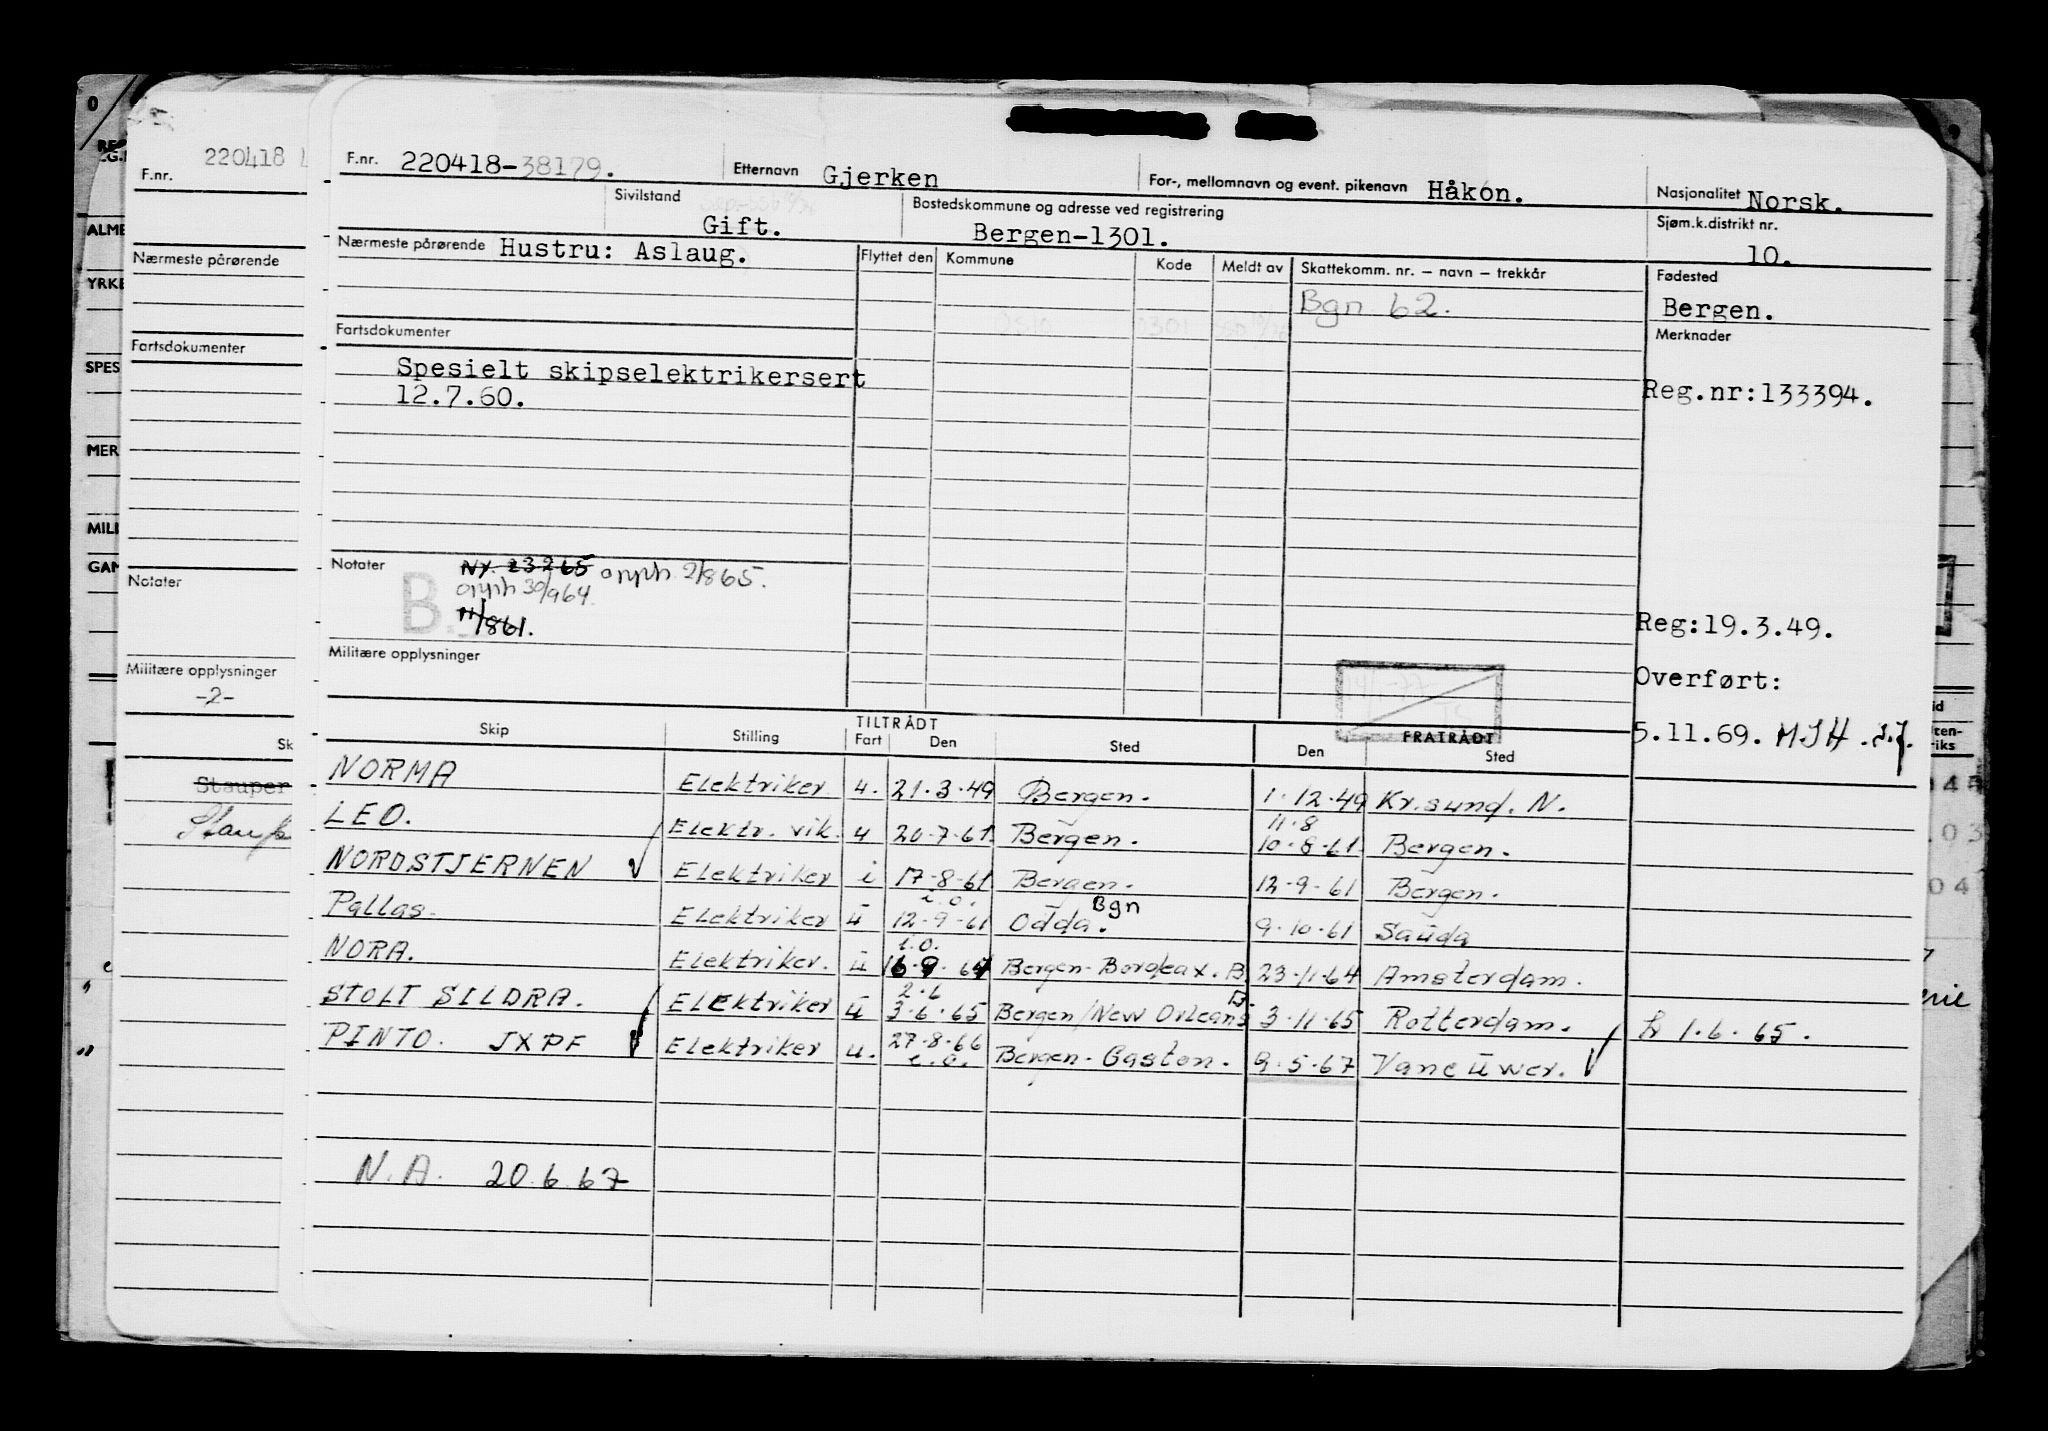 F.nr. 220418-38179. Etternavn Gjerken For-, mellomnavn og event. pikenavn Håkon. Nasjonalitet Norsk.
Sivilstand Gift. Bostedskommune og adresse ved registrering Bergen-1301. Sjøm.k.distrikt nr. 10.
Nærmeste pårørende Hustru: Aslaug. Flyttet den Kommune Kode Meldt av Skattekomm. nr. – navn – trekkår Fødested
Bgn 62. Bergen.
Fartsdokumenter Merknader
Spesielt skipselektrikersert
12.7.60.
Reg.nr:133394.
Notater Ny. 23265 opph 2/865.
B. opph 30/964.
11/861.
Reg:19.3.49.
Militære opplysninger
Overført:
5.11.69. MJH
Skip Stilling TILTRÅDT Fart Den Sted FRATRÅDT Den Sted
NORMA Elektriker 4. 21.3.49 Bergen. 1.12.49 Kr.sund. N.
LEO. Elektr. vik. u 20.7.61. Bergen. 11.8 10.8.61. Bergen.
NORDSTJERNEN Elektriker i 17.8.61 Bergen. 12.9.61 Bergen.
Pallas. Elektriker u i.o. 12.9.61 Odda. Bgn 9.10.61 Sauda
NORA. Elektriker. u i.o. 16.9.64 Bergen-Bordeax. B 23.11.64 Amsterdam.
STOLT SILDRA. Elektriker u 2.6 3.6.65 Bergen/New Orleans B. 3.11.65 Rotterdam. 1.6.65.
PINTO. JXPF Elektriker u. 27.8.66 i.o. Bergen-Gaston. 9.5.67 Vancuwer.
N.A. 20.6.67
220418
F.nr.
Nærmeste pårørende
Fartsdokumenter
Notater
Militære opplysninger
-2-
Sk
Stauper
ALME
YRKE
SPES
MER
MILI
GAN